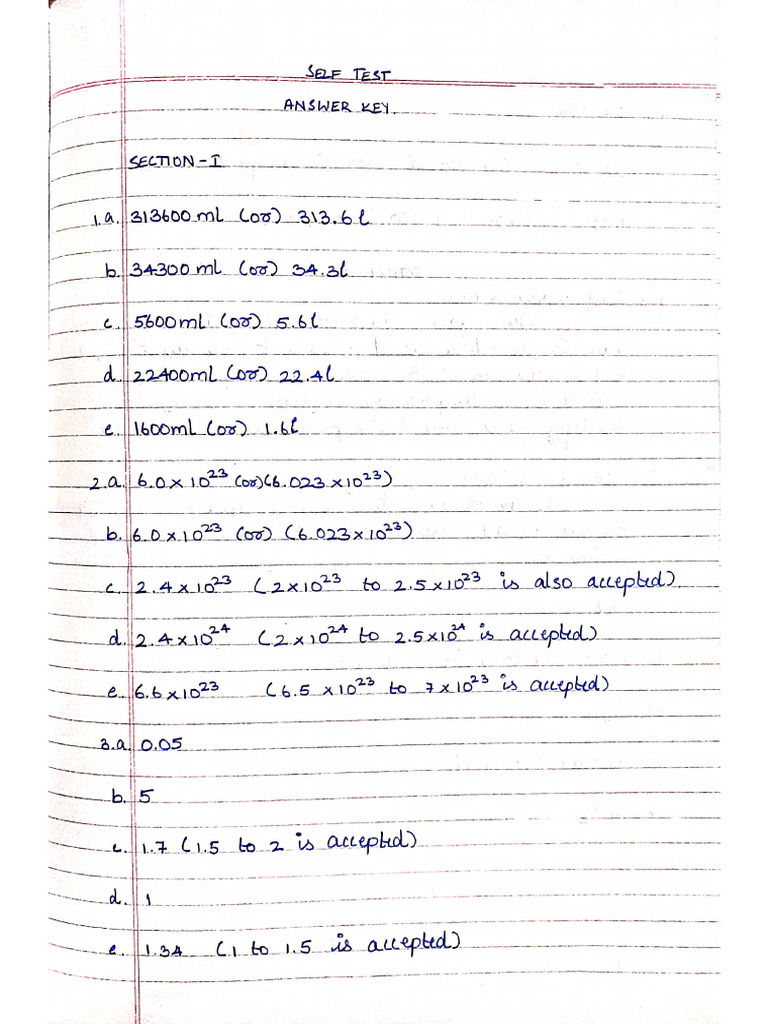 SELF TEST
ANSWER KEY.
SECTION-I
1.a. 313600 ml (or) 313.6 l
b. 34300 ml (or) 34.3 l
c. 5600ml (or) 5.6l
d. 22400ml (or) 22.4l
e. 1600ml (or) 1.6l
2.a. 6.0 × 10²³ (or)(6.023 × 10²³)
b. 6.0 × 10²³ (or) (6.023 × 10²³)
c. 2.4 × 10²³ (2 × 10²³ to 2.5 × 10²³ is also accepted)
d. 2.4 × 10²⁴ (2 × 10²⁴ to 2.5 × 10²⁴ is accepted)
e. 6.6 × 10²³ (6.5 × 10²³ to 7 × 10²³ is accepted)
3.a. 0.05
b. 5
c. 1.7 (1.5 to 2 is accepted)
d. 1
e. 1.34 (1 to 1.5 is accepted)